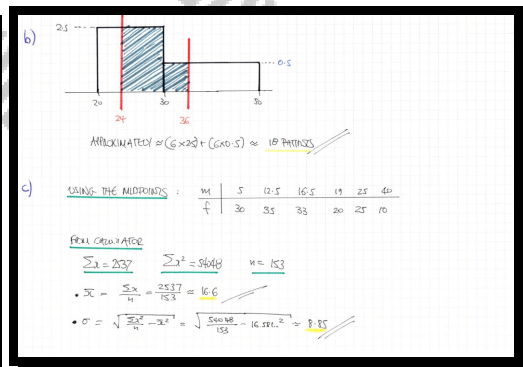 b)
2.5
0.5
20 30 50
24 36
APPROXIMATELY ≈ (6×2.5)+(6×0.5) ≈ 18 PATIENTS
c) USING THE MIDPOINTS : m 5 12.5 16.5 19 25 40
f 30 35 33 20 25 10
FROM CALCULATOR
Σx = 2537 Σx² = 54048 n = 153
• x̄ = Σx/n = 2537/153 ≈ 16.6
• σ = √(Σx²/n − x̄²) = √(54048/153 − 16.581...²) ≈ 8.85